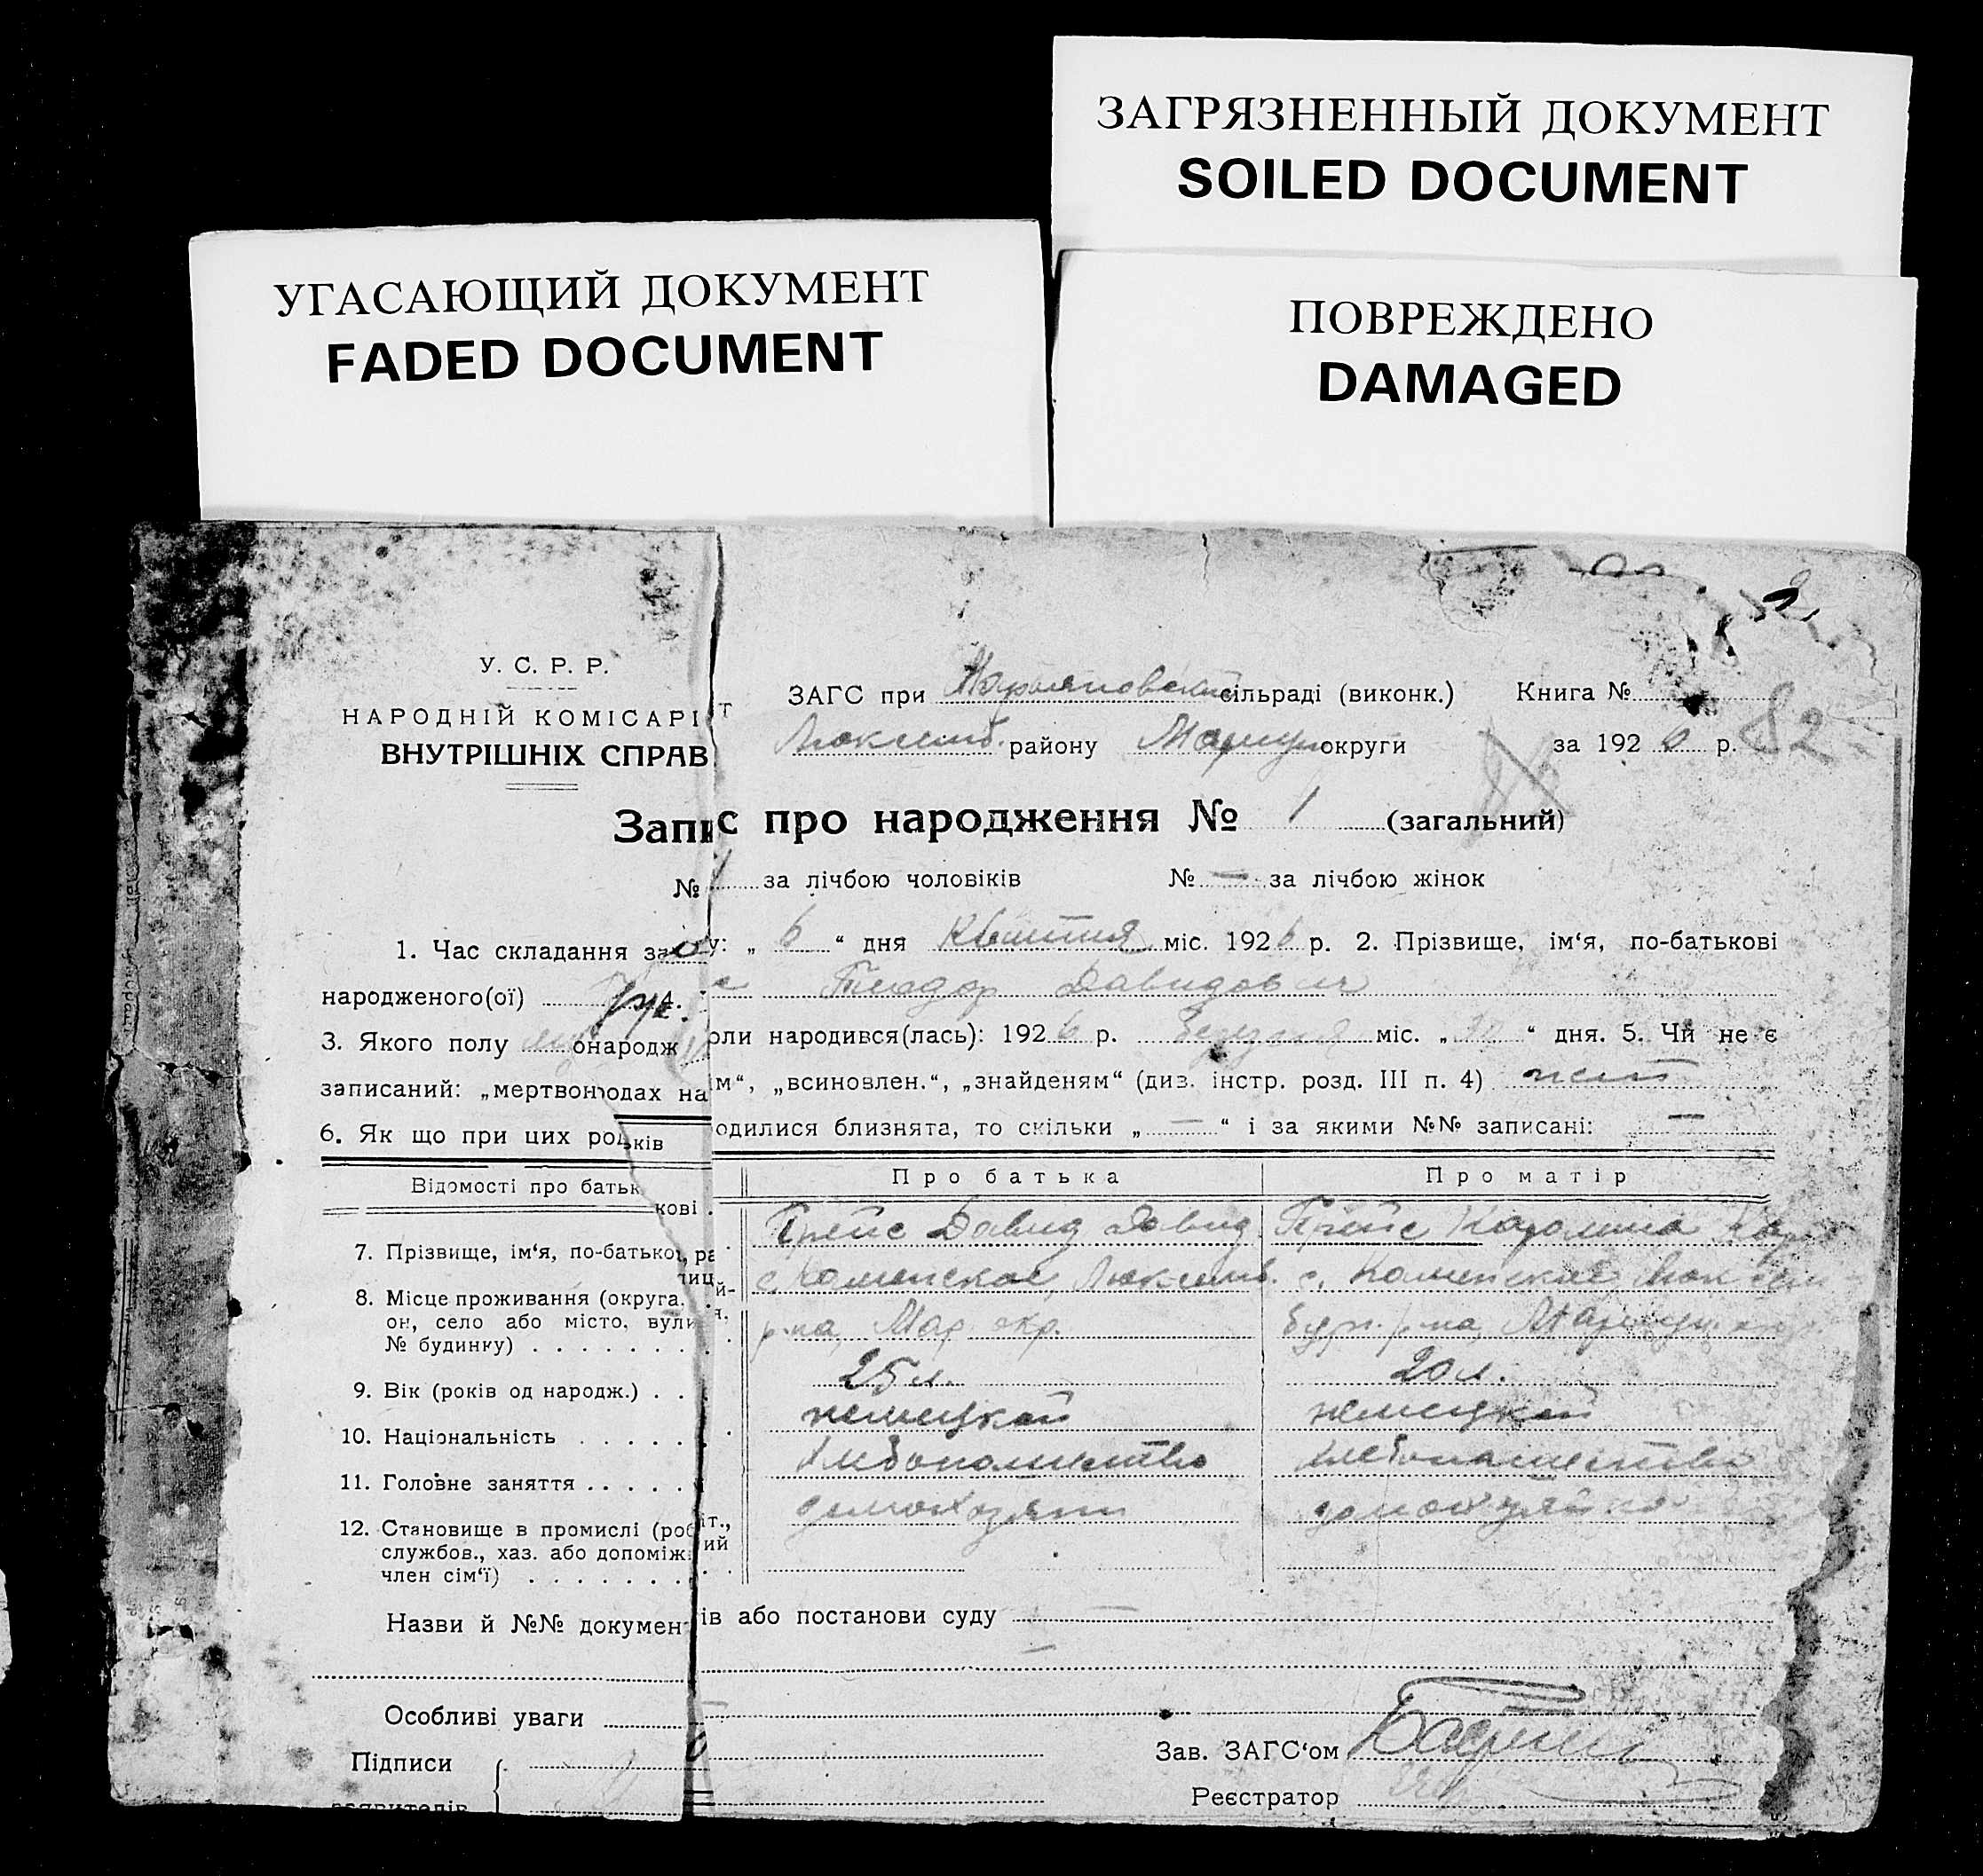 ЗАГРЯЗНЕННЫЙ ДОКУМЕНТ
SOILED DOCUMENT
УГАСАЮЩИЙ ДОКУМЕНТ
FADED DOCUMENT
ПОВРЕЖДЕНО
DAMAGED
У. С. Р. Р.
НАРОДНІЙ КОМІСАРІ Т
ВНУТРІШНІХ СПРАВ
ЗАГС при сільраді (виконк.) Книга №
району Мариуп округи за 192 6 р. 82
Запис про народження № 1 (загальний)
№ 1 за лічбою чоловіків № — за лічбою жінок
1. Час складання за у: „ 6 “ дня Квитня міс. 192 6 р. 2. Прізвище, ім‘я, по-батькові
народженого(ої) Теодор Давидович
3. Якого полу 4. оли народився(лась): 192 6 р. міс. „ “ дня. 5. Чи не є
записаний: „мертвон м“, „всиновлен.“, „знайденям“ (див. інстр. розд. III п. 4) нет
6. Як що при цих ро одилися близнята, то скільки „ — “ і за якими №№ записані: —
Відомості про батьків Про батька Про матір
7. Прізвище, ім‘я, по-батькові Прейс Давид Давид. Прейс Каролина
8. Місце проживання (округа, рай- с. Каменское, Люксемб. с. Каменское Люксем
он, село або місто, вулиця, р-на, Мар. окр. бург. р-на, Мариуп. окр.
№ будинку)
9. Вік (років од народж.) 25 л. 20 л.
10. Національність немецкой немецкой
11. Головне заняття хлебопашество хлебопашество
12. Становище в промислі (робіт., домохозяин домохозяйка
службов., хаз. або допоміжний
член сім‘ї)
Назви й №№ документів або постанови суду —
—
Особливі уваги —
Підписи Зав. ЗАГС‘ом
заявителів Реєстратор